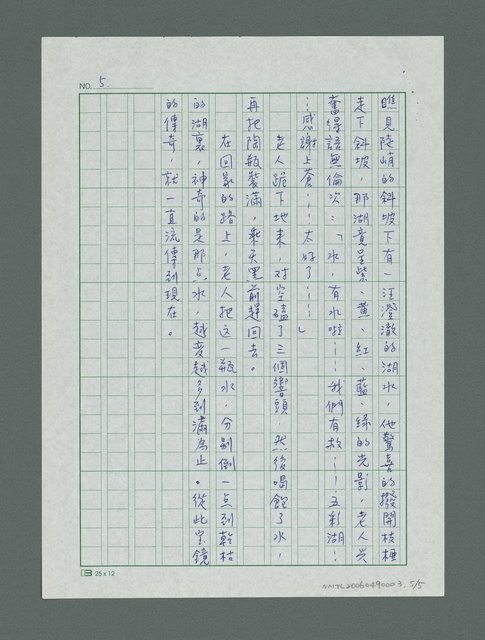 NO. 5.
瞧見陡峭的斜坡下有一汪澄澈的湖水，他驚喜的撥開枝椏
走下斜坡，那湖竟呈紫、黃、紅、藍、綠的光影，老人興
奮得語無倫次：「水，有水啦……我們有救……五彩湖…
…感謝上蒼……太好了……」
老人跪下地來，對空磕了三個響頭，然後喝飽了水，
再把陶瓶裝滿，乘天黑前趕回去。
在回家的路上，老人把这一瓶水，分别倒一点到乾枯
的湖裏，神奇的是那点水，越变越多到滿為止。從此宝鏡
的傳奇，就一直流傳到現在。
25x12
NMTL20060490003. 5/5